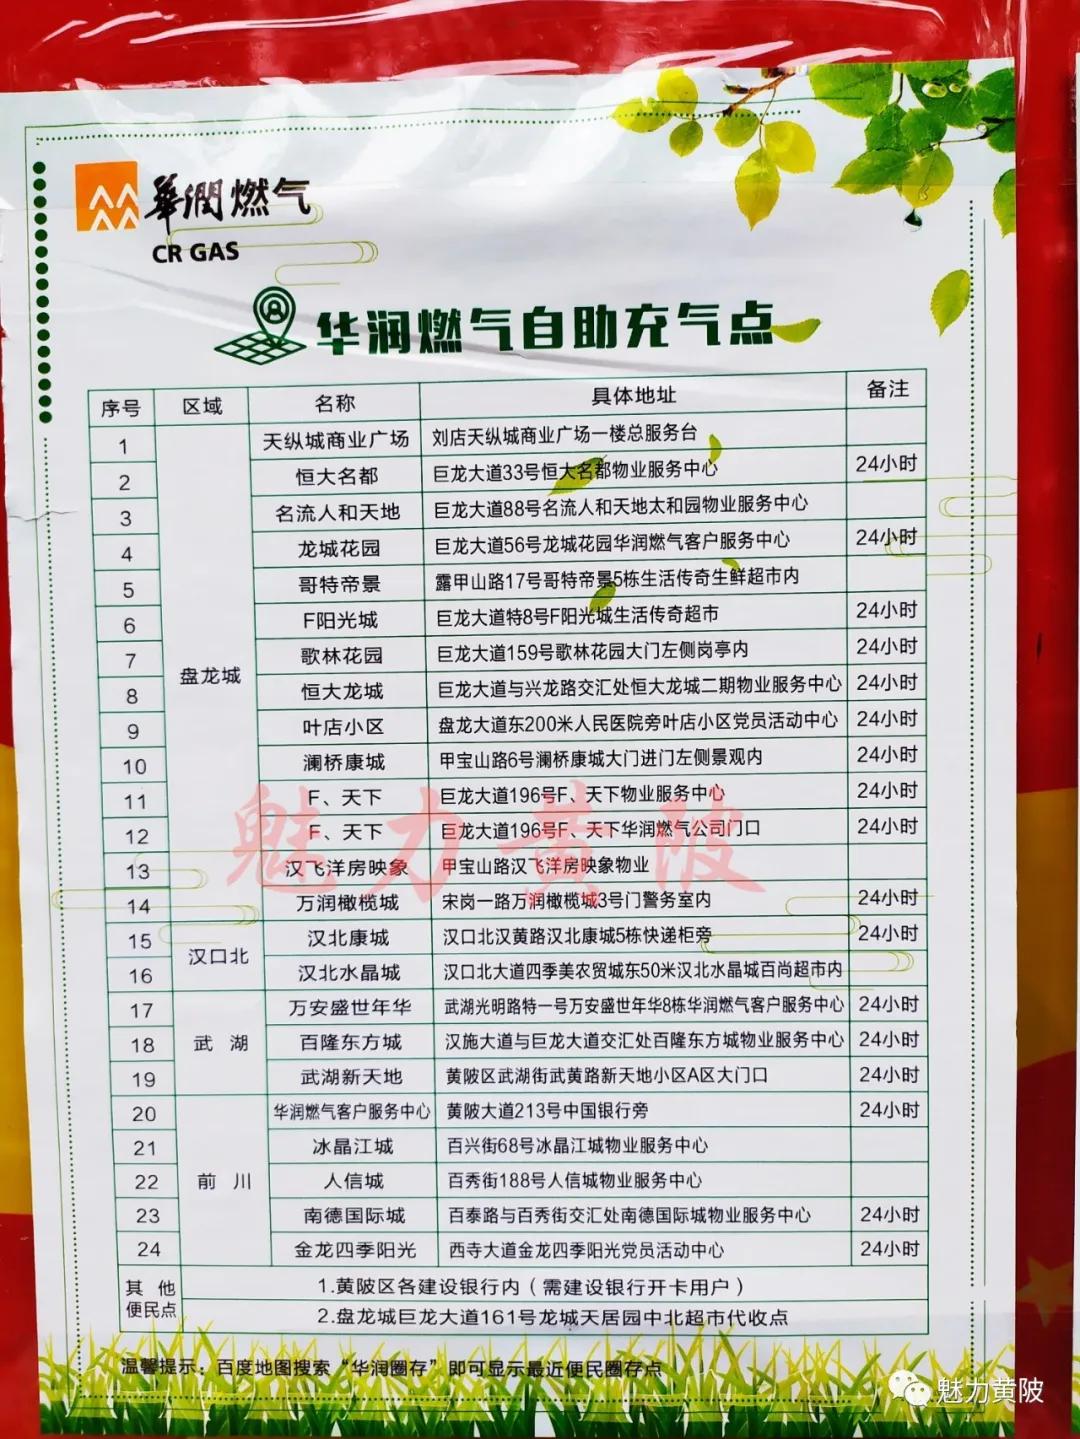 華潤燃气
CR GAS
华润燃气自助充气点
序号 区域 名称 具体地址 备注
1 天纵城商业广场 刘店天纵城商业广场一楼总服务台
2 恒大名都 巨龙大道33号恒大名都物业服务中心 24小时
3 名流人和天地 巨龙大道88号名流人和天地太和园物业服务中心
4 龙城花园 巨龙大道56号龙城花园华润燃气客户服务中心 24小时
5 哥特帝景 露甲山路17号哥特帝景5栋生活传奇生鲜超市内
6 F阳光城 巨龙大道特8号F阳光城生活传奇超市 24小时
7 歌林花园 巨龙大道159号歌林花园大门左侧岗亭内 24小时
盘龙城
8 恒大龙城 巨龙大道与兴龙路交汇处恒大龙城二期物业服务中心 24小时
9 叶店小区 盘龙大道东200米人民医院旁叶店小区党员活动中心 24小时
10 澜桥康城 甲宝山路6号澜桥康城大门进门左侧景观内 24小时
11 F、天下 巨龙大道196号F、天下物业服务中心 24小时
12 F、天下 巨龙大道196号F、天下华润燃气公司门口 24小时
13 汉飞洋房映象 甲宝山路汉飞洋房映象物业
14 万润橄榄城 宋岗一路万润橄榄城3号门警务室内 24小时
15 汉北康城 汉口北汉黄路汉北康城5栋快递柜旁 24小时
汉口北
16 汉北水晶城 汉口北大道四季美农贸城东50米汉北水晶城百尚超市内
17 万安盛世年华 武湖光明路特一号万安盛世年华8栋华润燃气客户服务中心 24小时
18 武湖 百隆东方城 汉施大道与巨龙大道交汇处百隆东方城物业服务中心 24小时
19 武湖新天地 黄陂区武湖街武黄路新天地小区A区大门口 24小时
20 华润燃气客户服务中心 黄陂大道213号中国银行旁 24小时
21 冰晶江城 百兴街68号冰晶江城物业服务中心
22 前川 人信城 百秀街188号人信城物业服务中心
23 南德国际城 百泰路与百秀街交汇处南德国际城物业服务中心 24小时
24 金龙四季阳光 西寺大道金龙四季阳光党员活动中心 24小时
其他便民点 1.黄陂区各建设银行内（需建设银行开卡用户）
2.盘龙城巨龙大道161号龙城天居园中北超市代收点
温馨提示：百度地图搜索“华润圈存”即可显示最近便民圈存点
魅力黄陂
魅力黄陂